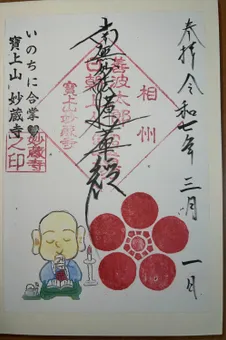 奉拝 令和七年 三月 一日
相州
善波太郎
南無妙法蓮華経
寶上山妙蔵寺
いのちに合掌
寶上山 妙蔵寺
妙蔵寺之印